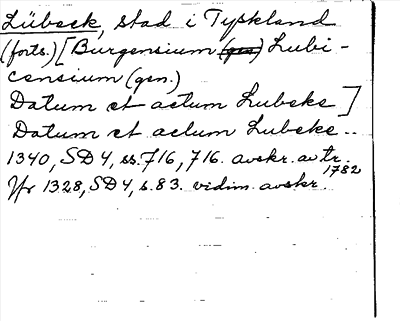 Lübeck, stad i Tyskland
(forts.) [Burgensium (gen) Lubi-
censium (gen.)
Datum et actum Lubeke]
Datum et actum Lubeke..
1340, SD 4, ss. 716, 716. avskr. av tr.
1782
Jfr 1328, SD 4, s. 83. vidim. avskr.